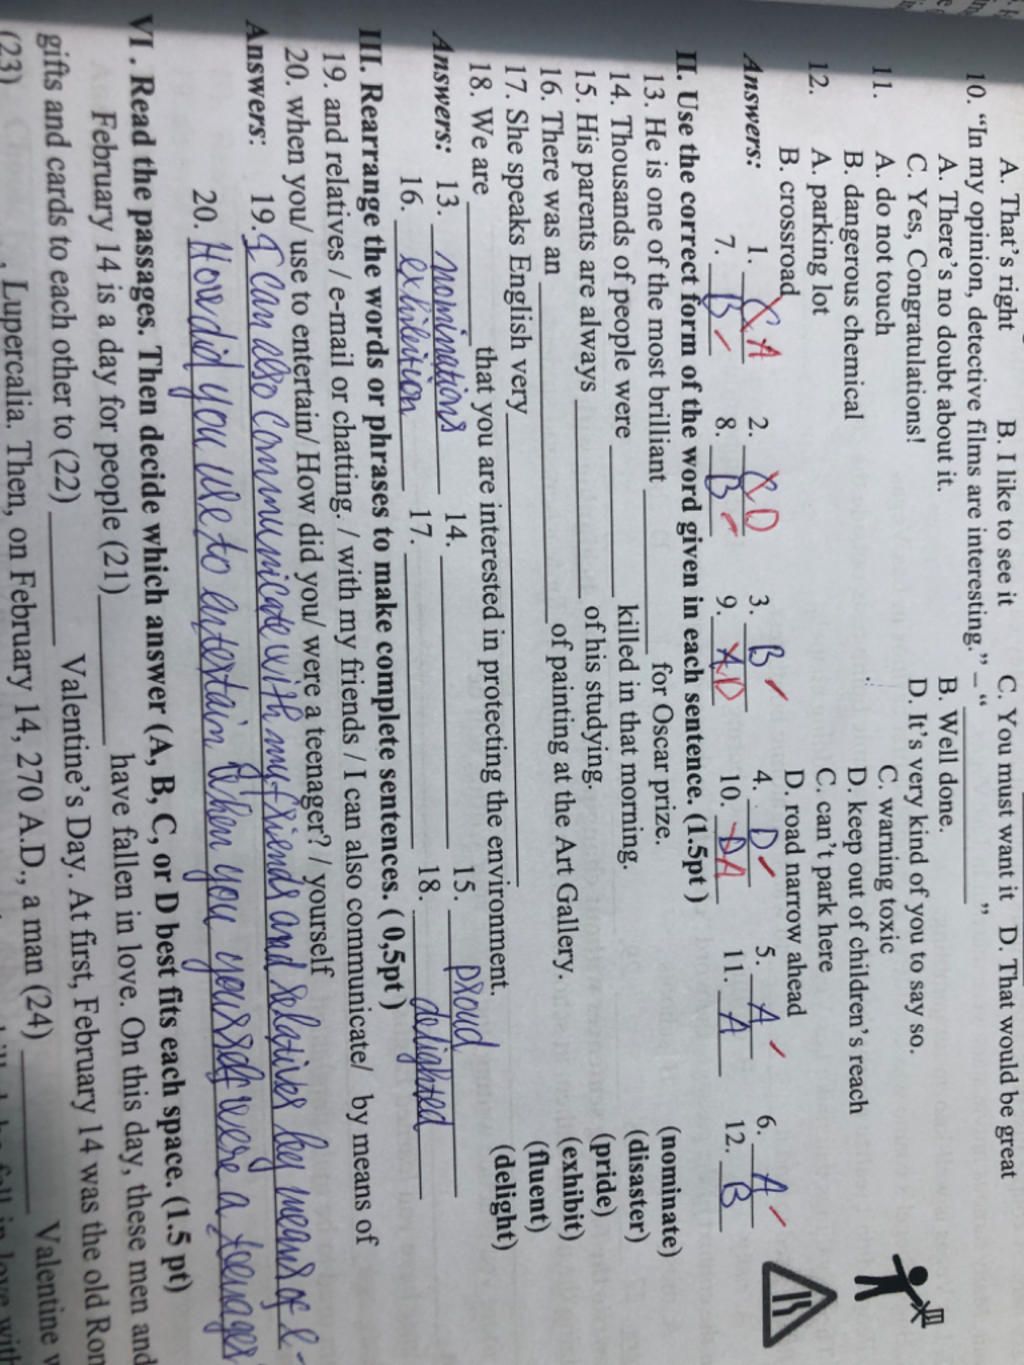 A. That's right B. I like to see it C. You must want it D. That would be great
10. "In my opinion, detective films are interesting." – "__________"
A. There's no doubt about it. B. Well done.
C. Yes, Congratulations! D. It's very kind of you to say so.
11. A. do not touch C. warning toxic
B. dangerous chemical D. keep out of children's reach
12. A. parking lot C. can't park here
B. crossroad D. road narrow ahead
Answers: 1. C A 2. D 3. B 4. D 5. A 6. A
7. B 8. B 9. A D 10. D A 11. A 12. B
II. Use the correct form of the word given in each sentence. (1.5pt )
13. He is one of the most brilliant __________ for Oscar prize. (nominate)
14. Thousands of people were __________ killed in that morning. (disaster)
15. His parents are always __________ of his studying. (pride)
16. There was an __________ of painting at the Art Gallery. (exhibit)
17. She speaks English very __________ (fluent)
18. We are __________ that you are interested in protecting the environment. (delight)
Answers: 13. nominations 14. __________ 15. proud
16. exhibition 17. __________ 18. delighted
III. Rearrange the words or phrases to make complete sentences. ( 0,5pt )
19. and relatives / e-mail or chatting. / with my friends / I can also communicate/ by means of
20. when you/ use to entertain/ How did you/ were a teenager? / yourself
Answers: 19. I can also communicate with my friends and relatives by means of e-
20. How did you use to entertain when you yourself were a teenager
VI . Read the passages. Then decide which answer (A, B, C, or D best fits each space. (1.5 pt)
February 14 is a day for people (21)__________ have fallen in love. On this day, these men and
gifts and cards to each other to (22) __________ Valentine's Day. At first, February 14 was the old Rom
(23) , Lupercalia. Then, on February 14, 270 A.D., a man (24) __________ Valentine